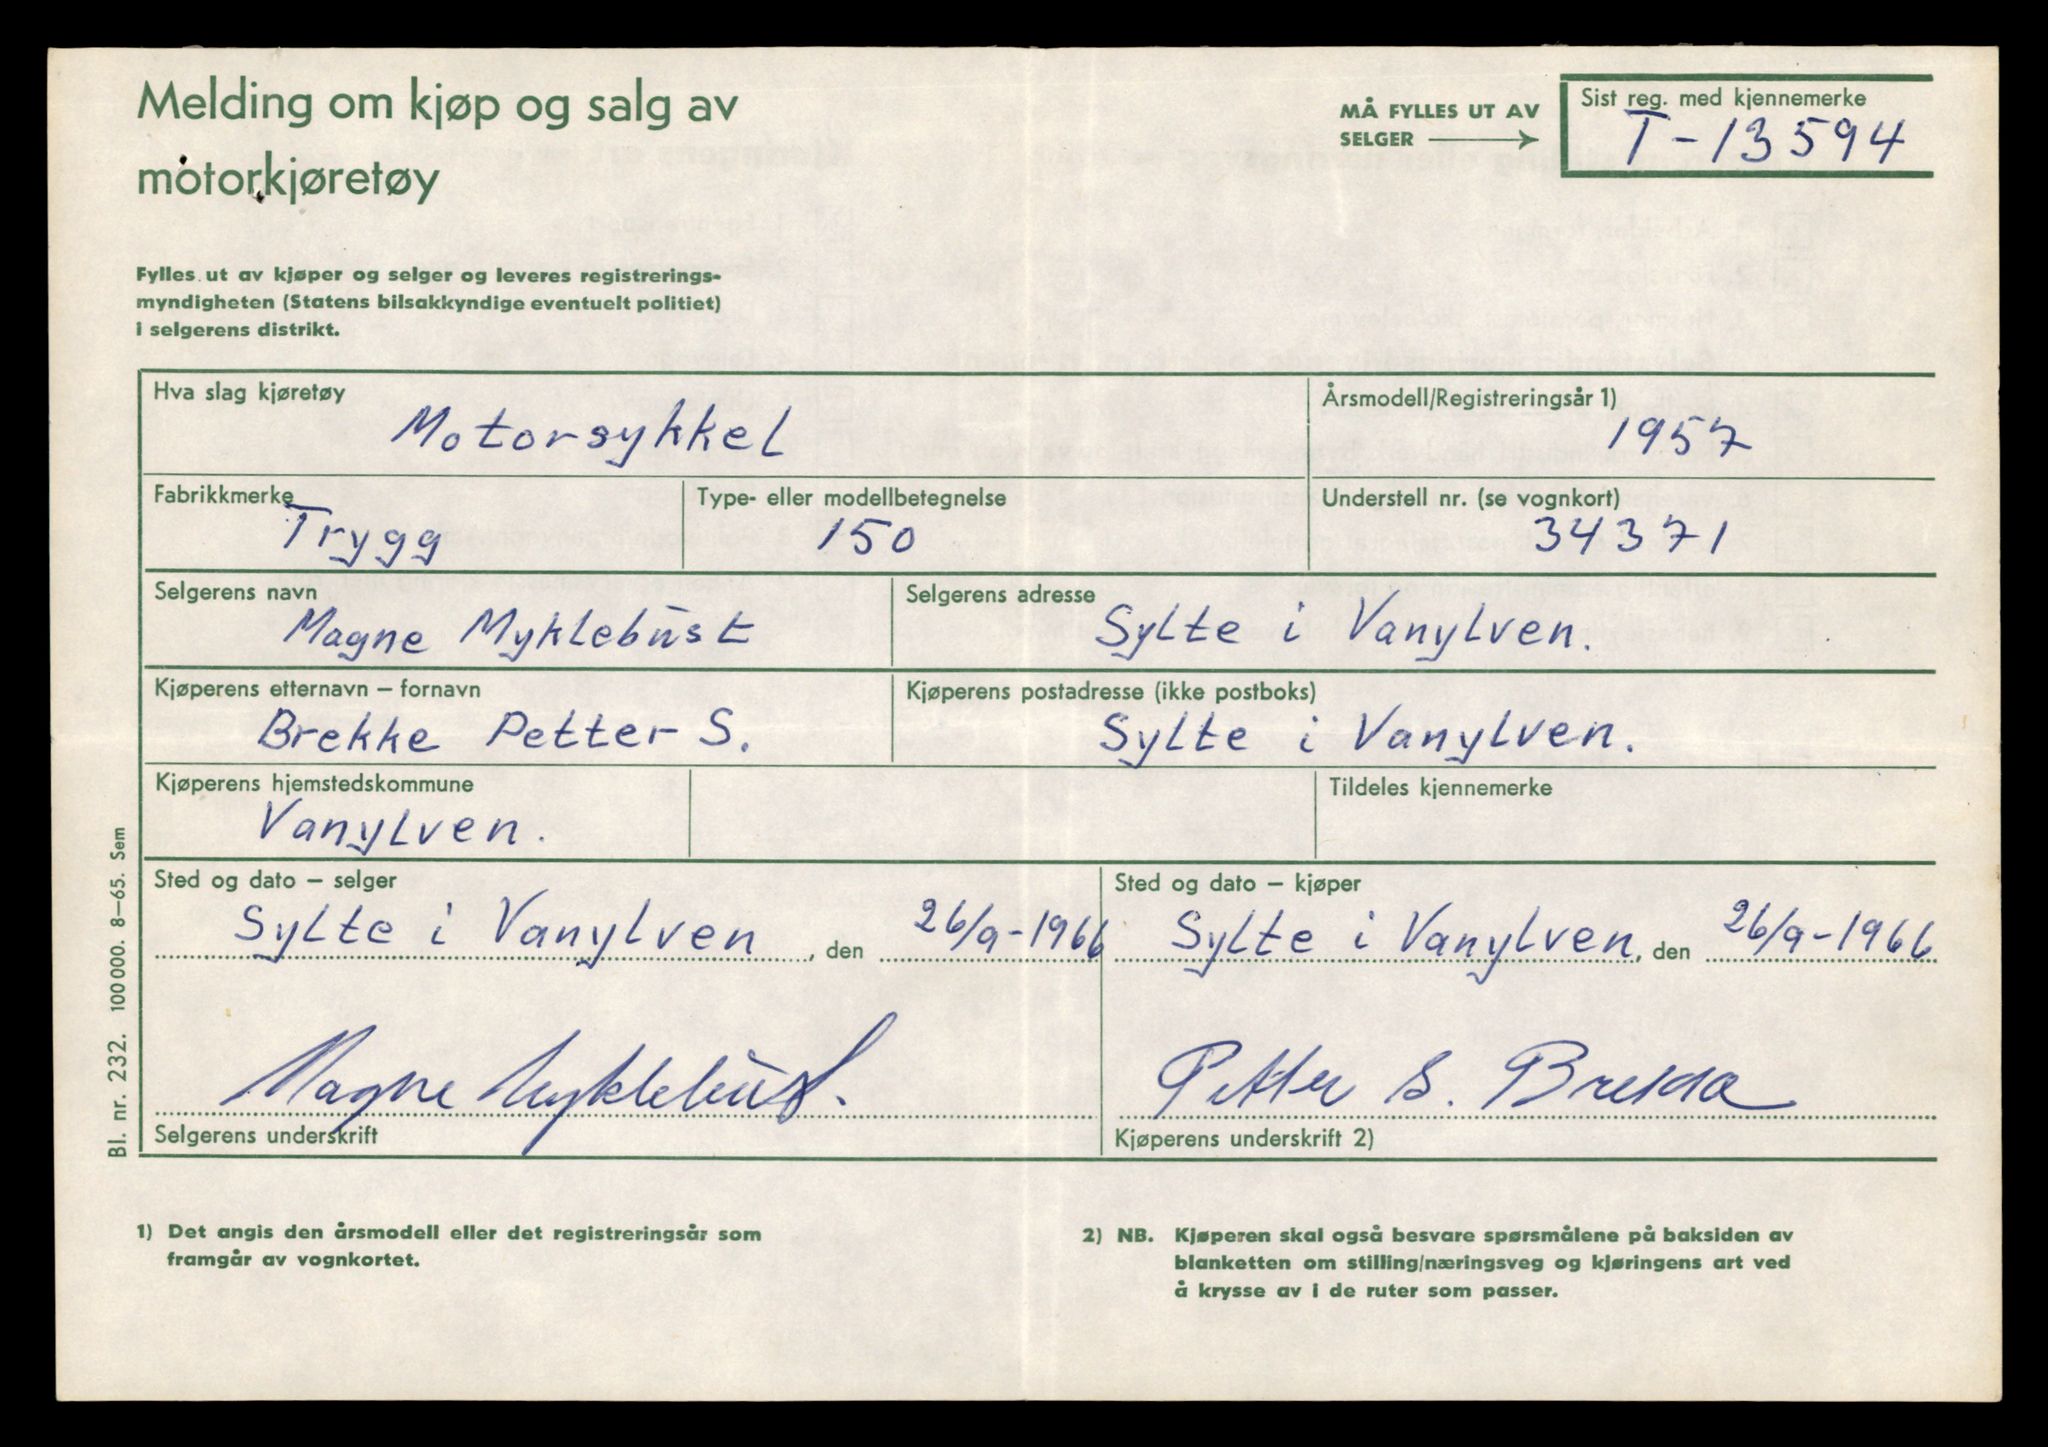 Melding om kjøp og salg av
motorkjøretøy
MÅ FYLLES UT AV
SELGER
Sist reg. med kjennemerke
T-13594
Fylles ut av kjøper og selger og leveres registrerings-
myndigheten (Statens bilsakkyndige eventuelt politiet)
i selgerens distrikt.
Hva slag kjøretøy
Motorsykkel
Årsmodell/Registreringsår 1)
1957
Fabrikkmerke
Trygg
Type- eller modellbetegnelse
150
Understell nr. (se vognkort)
34371
Selgerens navn
Magne Myklebust
Selgerens adresse
Sylte i Vanylven.
Kjøperens etternavn – fornavn
Brekke Petter S.
Kjøperens postadresse (ikke postboks)
Sylte i Vanylven.
Kjøperens hjemstedskommune
Vanylven.
Tildeles kjennemerke
Sted og dato – selger
Sylte i Vanylven, den 26/9-1966
Sted og dato – kjøper
Sylte i Vanylven, den 26/9-1966
Magne Myklebust.
Selgerens underskrift
Petter S. Brekke
Kjøperens underskrift 2)
Bl. nr. 232. 100 000. 8–65. Sem
1) Det angis den årsmodell eller det registreringsår som
framgår av vognkortet.
2) NB. Kjøperen skal også besvare spørsmålene på baksiden av
blanketten om stilling/næringsveg og kjøringens art ved
å krysse av i de ruter som passer.